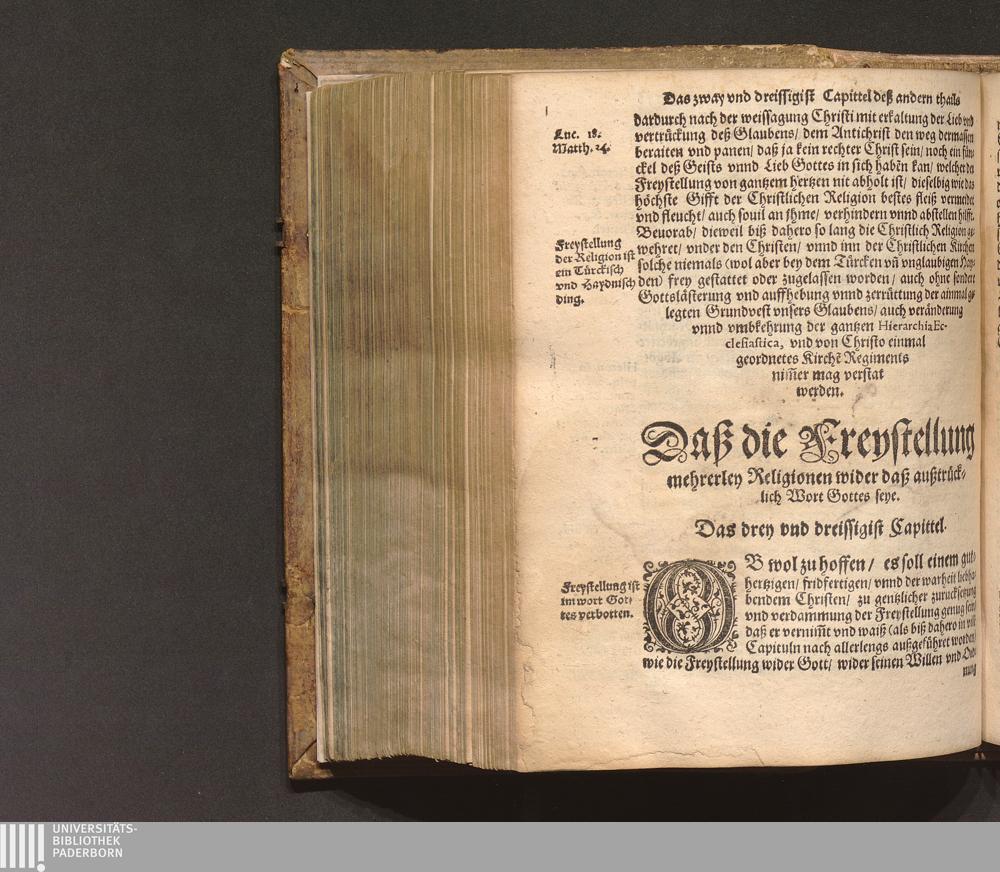 Das zway vnd dreissigist Capittel deß andern thails
dardurch nach der weissagung Christi mit erkaltung der Lieb vnd
vertrückung deß Glaubens/ dem Antichrist den weg dermassen
beraiten vnd panen/ daß ja kein rechter Christ sein/ noch ein fün-
ckel deß Geists vnnd Lieb Gottes in sich habẽn kan/ welcher der
Freystellung von gantzem hertzen nit abholt ist/ dieselbig wie das
höchste Gifft der Christlichen Religion bestes fleiß vermeidet
vnd fleucht/ auch souil an jhme/ verhindern vnnd abstellen hilfft.
Beuorab/ dieweil biß dahero so lang die Christlich Religion ge-
wehret/ vnder den Christen/ vnnd inn der Christlichen Kirchen
solche niemals (wol aber bey dem Türcken vñ vnglaubigen Hay-
den) frey gestattet oder zugelassen worden/ auch ohne sondere
Gottslästerung vnd auffhebung vnnd zerrüttung der ainmal ge-
legten Grundvest vnsers Glaubens/ auch veränderung
vnnd vmbkehrung der gantzen Hierarchia Ec-
clesiastica, vnd von Christo einmal
geordnetes Kirchẽ Regiments
nim̃er mag verstat
werden.
Luc. 18.
Matth. 24.
Freystellung
der Religion ist
ein Türckisch
vnd Haydnisch
ding.
Daß die Freystellung
mehrerley Religionen wider daß außtrück-
lich Wort Gottes seye.
Das drey vnd dreissigist Capittel.
Freystellung ist
im wort Got-
tes verbotten.
OB wol zu hoffen/ es soll einem gut-
hertzigen/ fridfertigen/ vnnd der warheit liebha-
bendem Christen/ zu gentzlicher zurucksetzung
vnd verdammung der Freystellung genug sein/
daß er vernim̃t vnd waiß (als biß dahero in vilen
Capituln nach allerlengs außgeführet worden)
wie die Freystellung wider Gott/ wider seinen Willen vnd Ord-
nung
UNIVERSITÄTS-
BIBLIOTHEK
PADERBORN